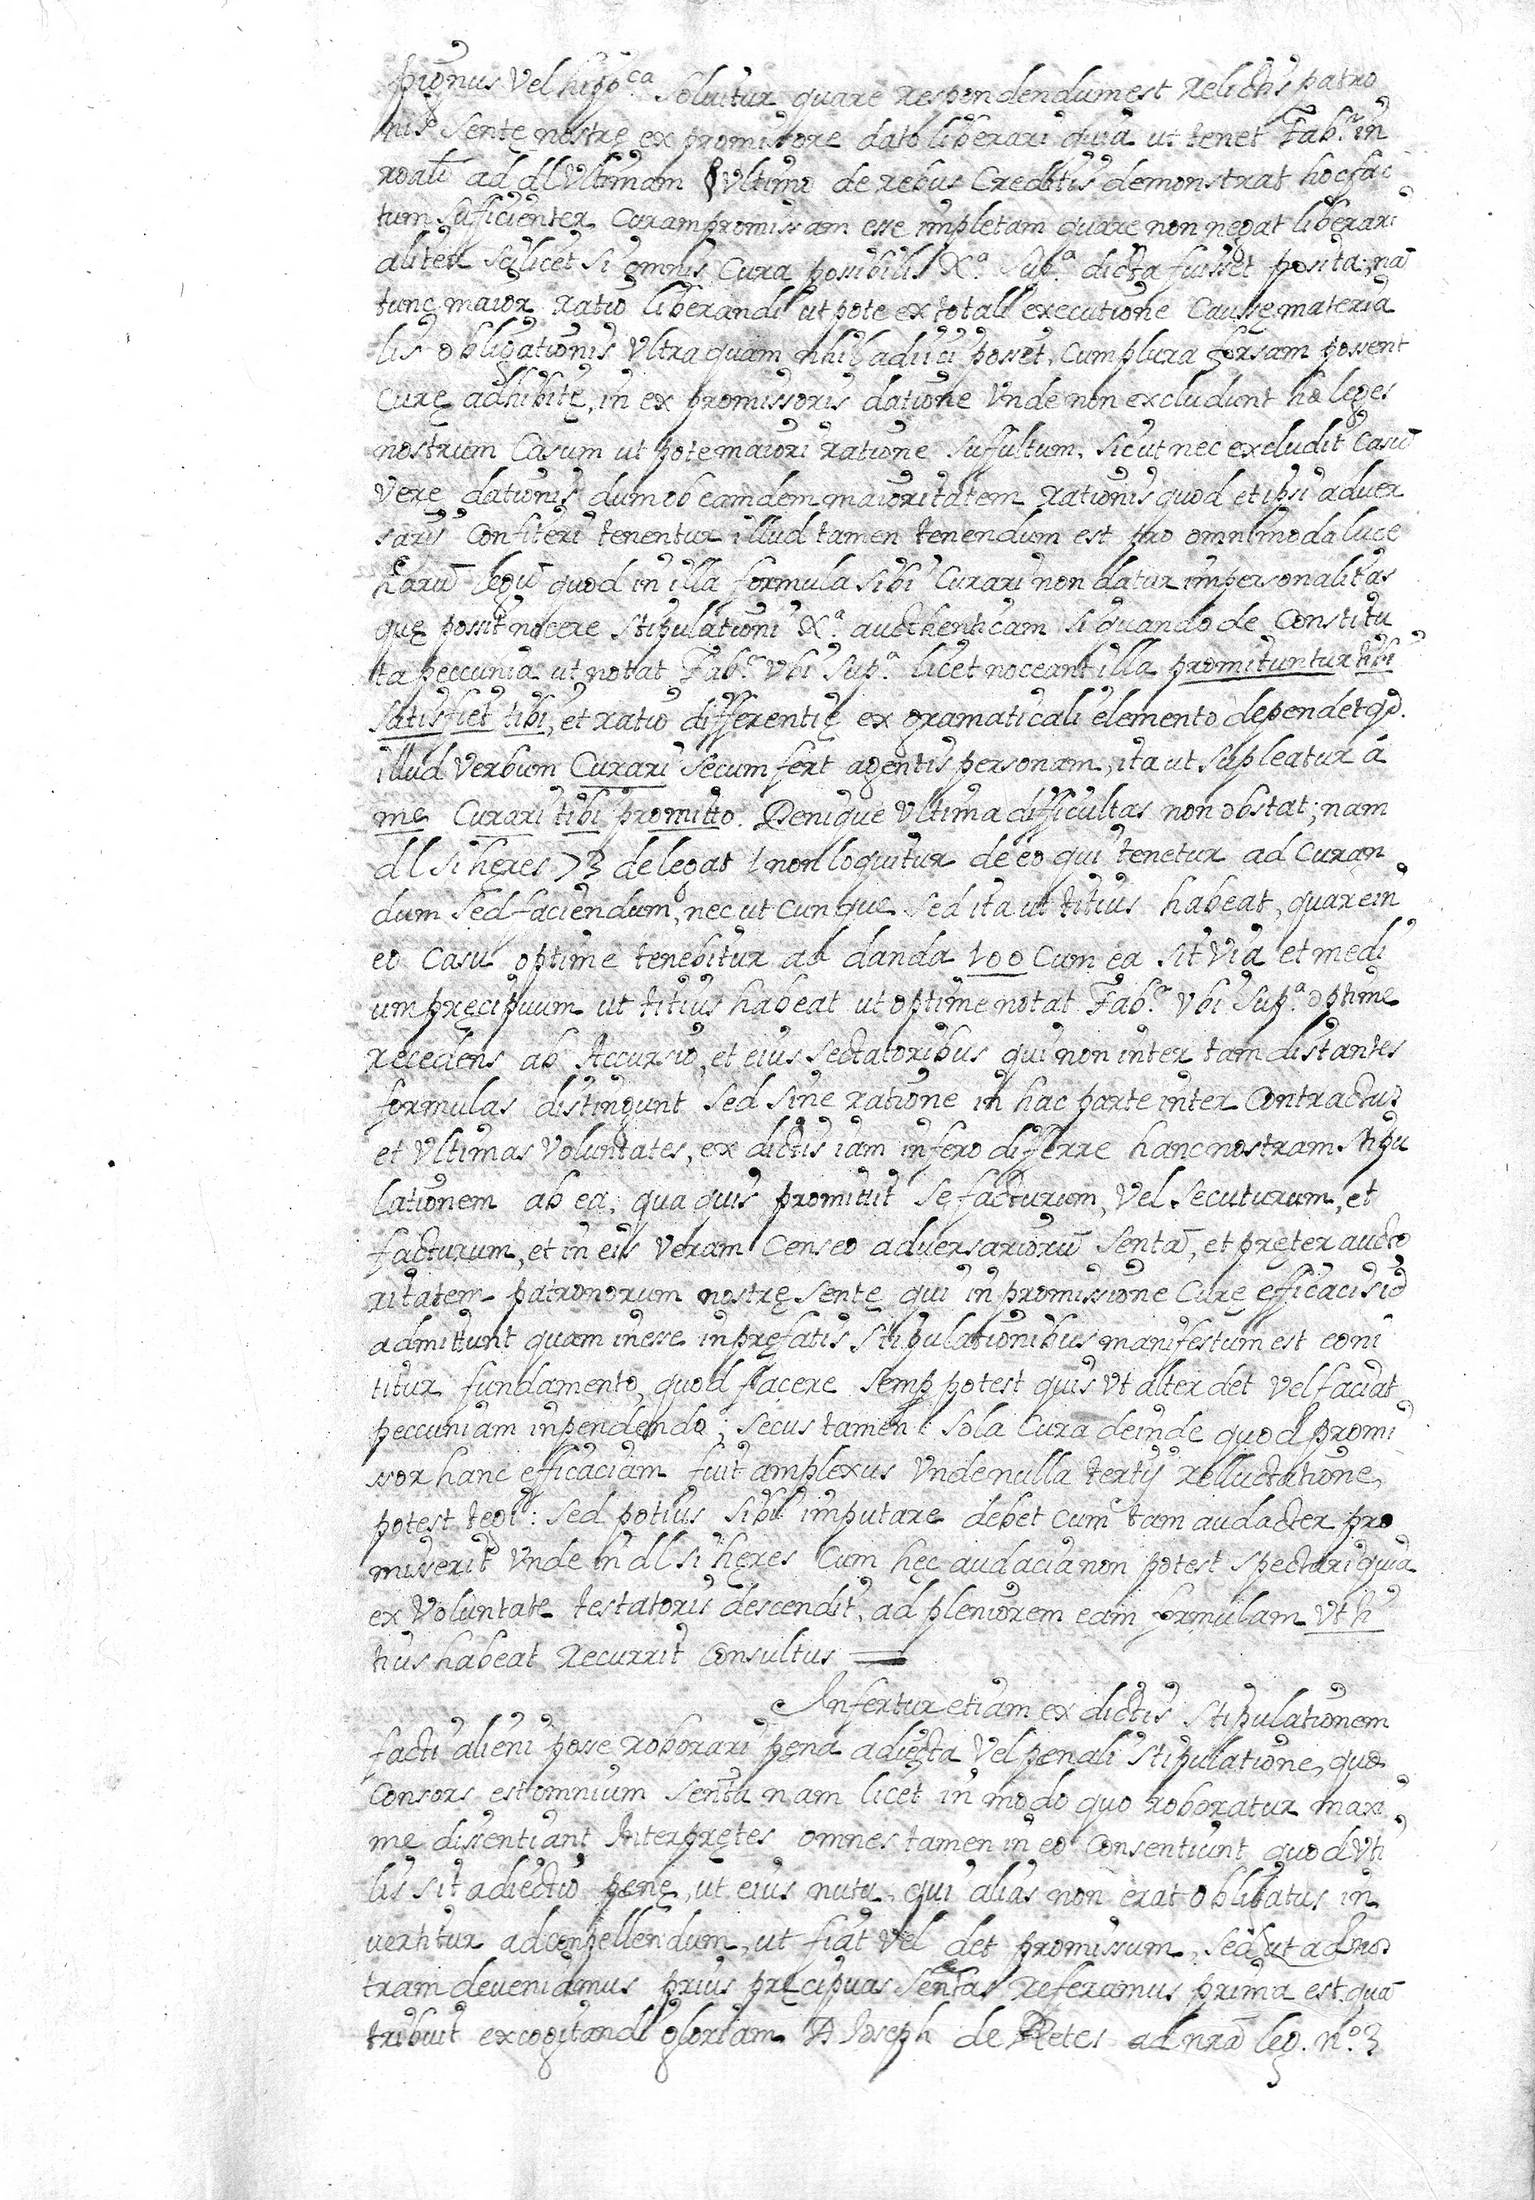 pignus Vel hipo.ca Solvitur quare respondendum est relictis patro
nis sentę nostrę ex promisore dato liberari quia ut tenet Fab.r in
ad dl Ultimam § Ultimo de rebus Creditis demonstrat hoc fac
tum suficienter Curam promissam esse impletam quare non negat liberari
aliter scilicet si omnis Cura possibilis Xa. Sup.a dicta fuisset posita; nã
tunc maior ratio liberandi ut pote ex totali executione Causę materia
lis obligationis Ultra quam nihil adiici posset, Cum plura forsam possent
Curę adhibitę, in ex promissoris datione Unde non excludunt hę leges
nostrum Casum ut pote maiori ratione suffultum, sicut nec excludit Casũ
verę dationis dum ob eamdem maioritatem rationis quod et ipsi adver
sarij Confiteri tenentur illud tamen tenendum est pro omnimoda luce
harũ legũ quod in illa formula sibi Curari non datur impersonalitas
quę possit nocere stipulationi Xa. aucthenticam si quando de Constitu
ta peccunia ut notat Fab.r Ubi Sup.a licet noceant illa promituntur tibi
satisfiet tibi, et ratio differentię ex gramaticali elemento dependet qd.
illud verbum Curari secum fert agentis personam, ita ut supleatur á
me Curari tibi promitto. Denique Ultima difficultas non obstat; nam
dl si hęres 73 de legat 1 non loquitur de eo qui tenetur ad Curan
dum sed faciendum, nec ut cunque sed ita ut titius habeat, quare in
eo Casu optime tenebitur ad danda 100 Cum ea sit Via et medi
um pręcipuum ut titius habeat ut optime notat Fab.r Ubi Sup.a optime
recedens ab Accursio, et eius sectatoribus qui non inter tam distantes
formulas distingunt sed sine ratione in hac parte inter Contractus
et Ultimas Voluntates, ex dictis iam infero differre hanc nostram stipu
lationem ab ea, qua quis promittit se facturum, Vel secuturum, et
facturum, et in eis veram Censeo adversariorũ sentã, et pręter aucto
ritatem patronorum nostrę sentę qui in promissione Curę efficacis id
admitunt quam inesse in pręfatis stipulationibus manifestum est coni
titur fundamento, quod facere semp potest quis Ut alter det Vel faciat
peccuniam inpendendo; secus tamen sola Cura deinde quod promi
ssor hanc efficaciam fuit amplexus Unde nulla tertij relluctatione,
potest tegi: sed potius sibi imputare debet cum tam audacter pro
misserit Unde in dl si hęres Cum hęc audacia non potest spectari quia
ex Voluntate testatoris descendit, ad pleniorem eam formulam Ut ti
tius habeat recurrit Consultus
Infertur etiam ex dictis stipulationem
facti alieni posse roborari pęna adiecta Vel penali stipulatione, quę
Consors est omnium senta nam licet in modo quo roboratur maxi
me dissentiant Interpretes omnes tamen in eo Consentiunt quod Uti
lis sit adiectio penę, ut eius nutu, qui alias non erat obligatus in
vertitur ad conpellendum, ut fiat vel det promissum, sed ut ad nos
tram deveniamus prius pręcipuas sentas referamus prima est quã
tribuit excogitandi gloriam D Joseph de Retes ad nrã leg. n.o 3